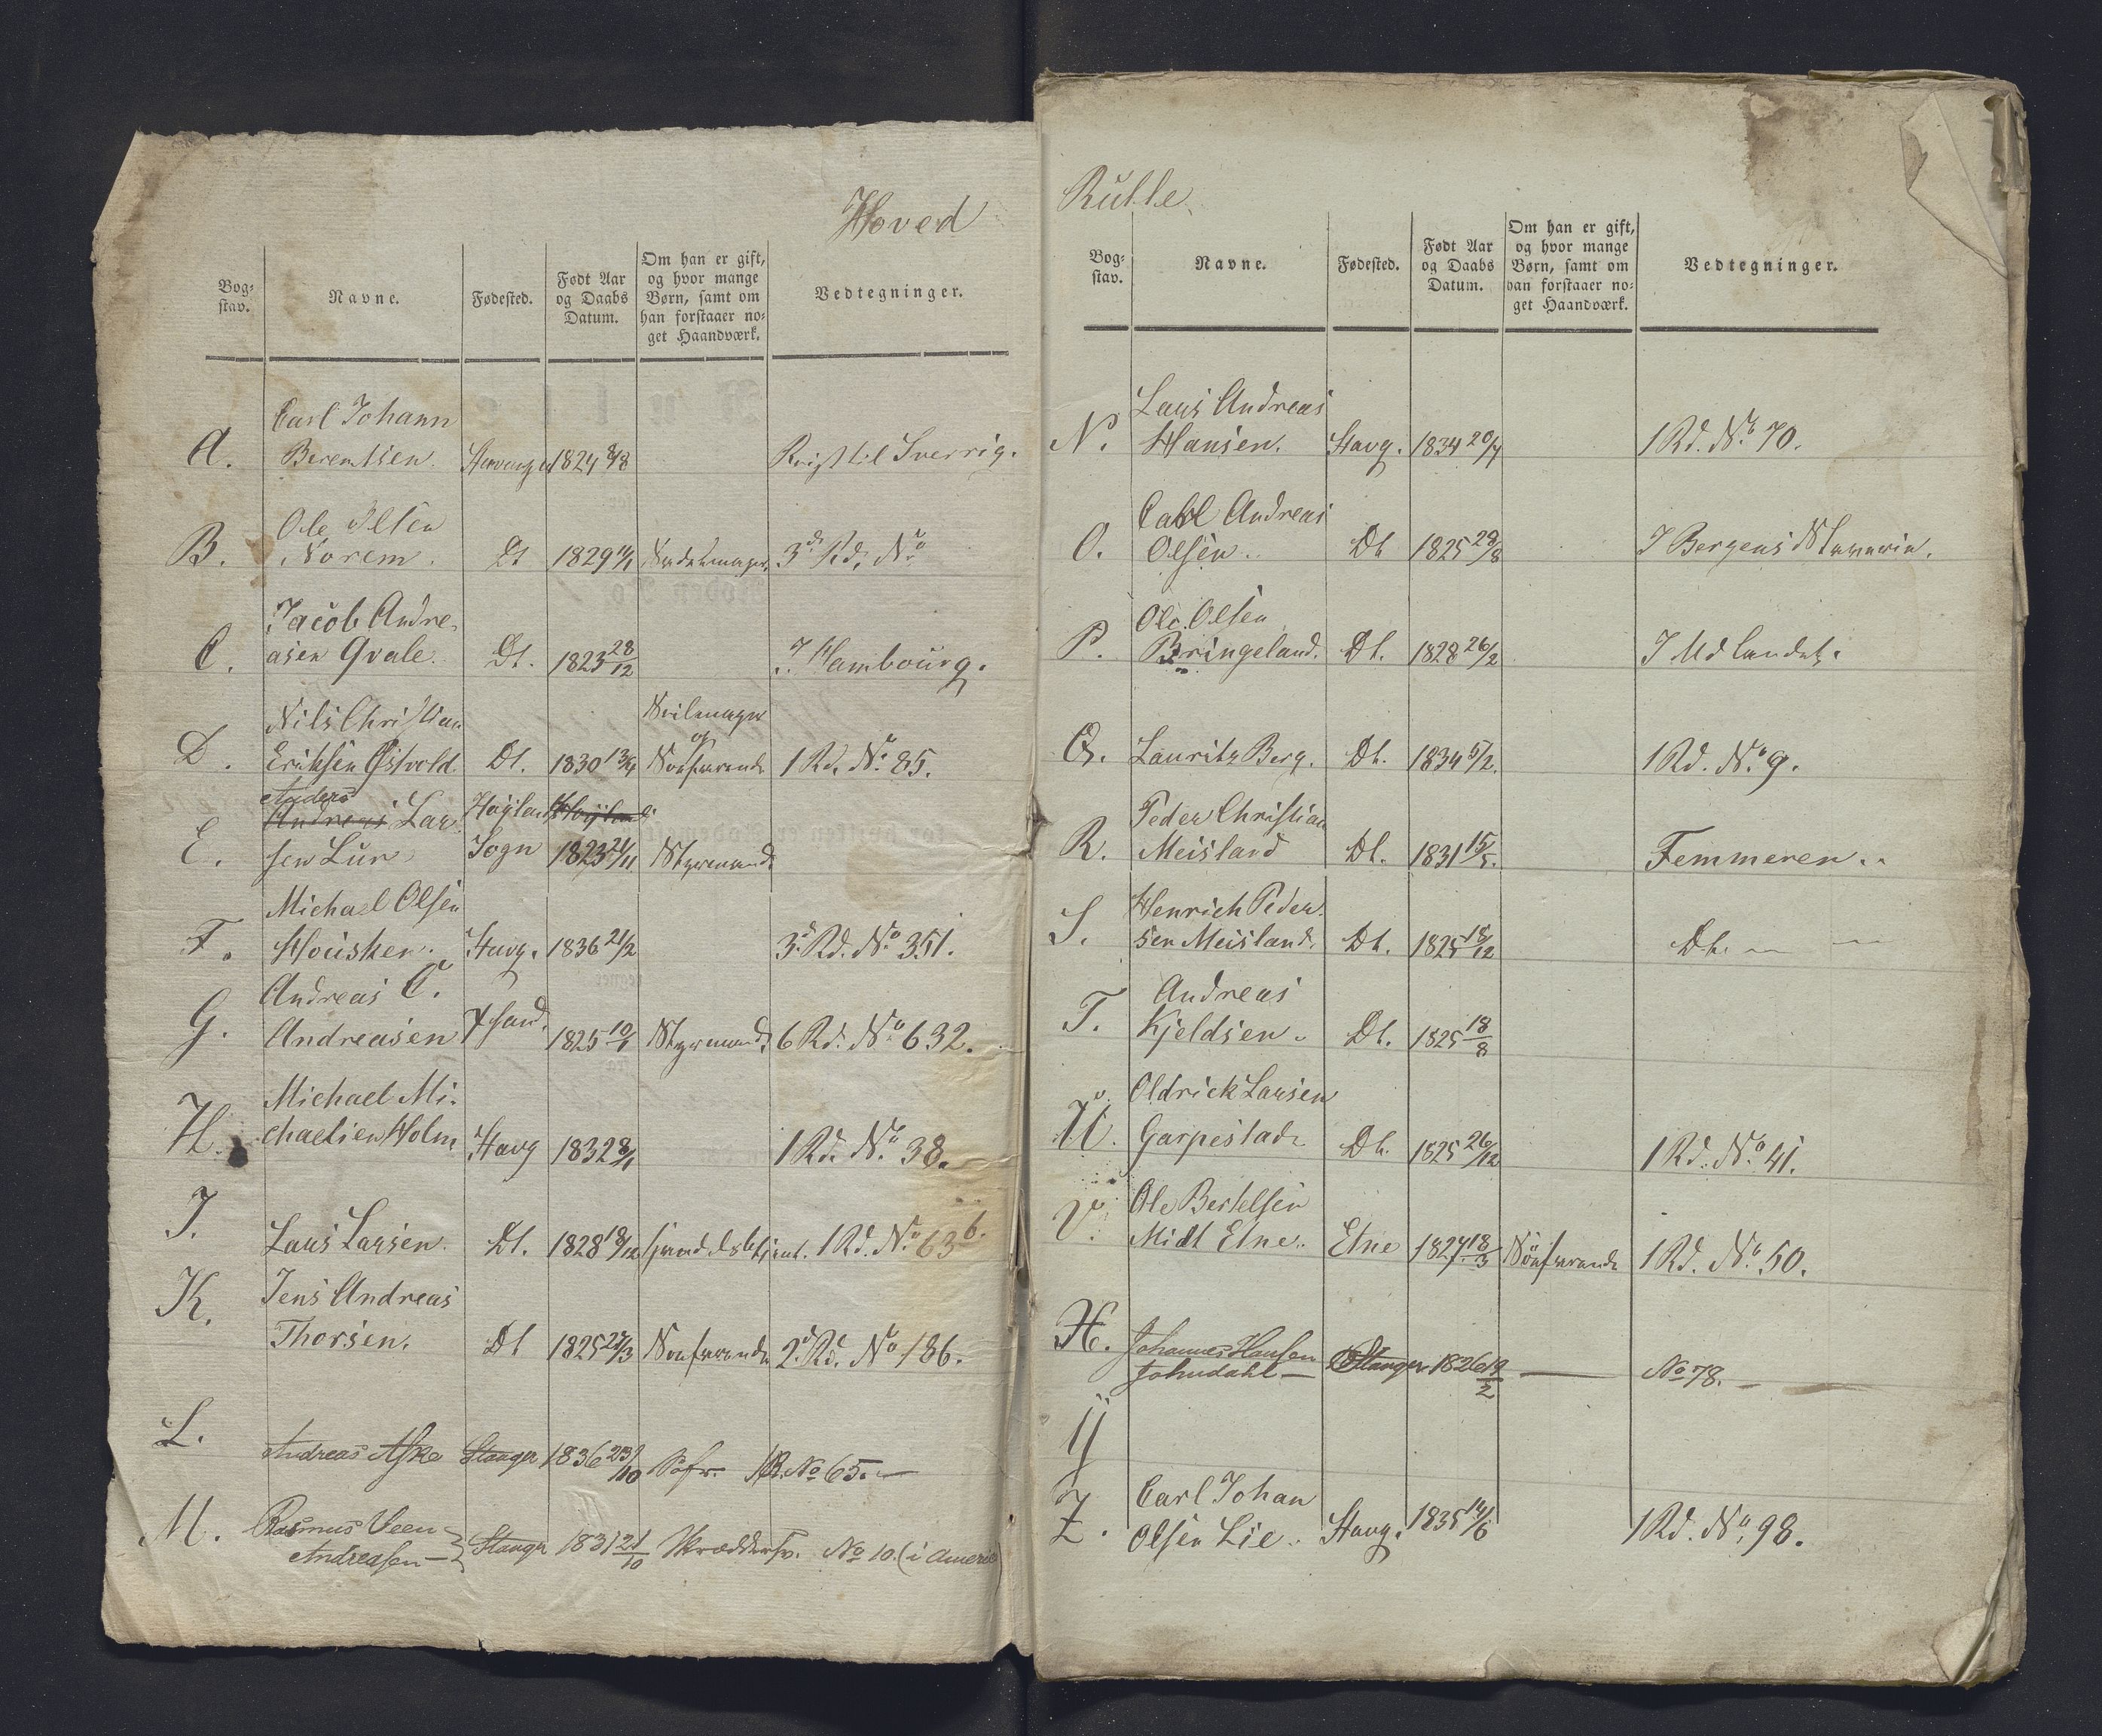 Hoved
Bog-
stav.
Navne.
Fødested.
Født Aar
og Daabs
Datum.
Om han er gift,
og hvor mange
Børn, samt om
han forstaaer no-
get Haandværk.
Vedtegninger.
Carl Johann
A. Berentsen. Stavanger 1824 8/8 Reist til Sverrig.
Ole Olsen
B. Norem. Dt 1829 3d Rd. No
Jacob Andre-
C. asen Qvale. Dt. 1823 28/12 I Hambourg.
Nils Christian Seilmager
og
D. Eriksen Østvold. Dt. 1830 13/4 Søefarende 1 Rd. No 85.
Anders
Andreas Lar- Høyland Høyland
E. sen Lur Sogn 1823 21/11 Styrmand.
Michael Olsen
F. Housken. Stavg. 1836 21/2 3d Rd. No 351.
Andreas C.
G. Andreasen 1825 10/1 Styrmand. 6 Rd. No 632.
Michael Mi-
H. chaelsen Holm Stavg 1832 8/1 1 Rd. No 38.
I.
Lars Larsen. Dt. 1828 18/12 1 Rd. No 636.
K. Jens Andreas
Thorsen. Dt 1825 27/3 Søefarende 2d Rd. No 186.
L.
Andreas Aske Stavger 1836 23/10 Søfr. 1 R. No 65.
M. Rasmus Veen
Andreasen Stavger 1831 21/10 Skræddersv. No 10. (i Amerik)
Rulle
Bog-
stav.
Navne.
Fødested.
Født Aar
og Daabs
Datum.
Om han er gift,
og hvor mange
Børn, samt om
han forstaaer no-
get Haandværk.
Vedtegninger.
Lars Andreas
N. Hansen. Stavg. 1834 20/4 1 Rd. No 70.
Carl Andreas
O. Olsen. Dt 1825 28/8 I Bergens Slaverie.
Ole Olsen
P. Bringeland. Dt. 1828 26/2 I Udlandet.
Q. Lauritz Berg. Dt. 1834 5/2. 1 Rd. No 9.
Peder Christian
R. Meisland Dt. 1831 15/5. Femmeren.
Henrich Peder-
S. sen Meisland. Dt. 1825 18/12 Dt.
Andreas
T. Kjeldsen. Dt. 1825 18/8
Oldrick Larsen
U. Garpestad Dt. 1825 26/12 1 Rd. No 41.
Ole Bertelsen
V. Midt Etne. Etne 1827 18/3 Søefarende 1 Rd. No 50.
X. Johannes Hansen
Johndahl Stavger 1826 19/2 No 78.
Y
Carl Johan
Z. Olsen Lie. Stavg. 1835 14/6 1 Rd. No 98.